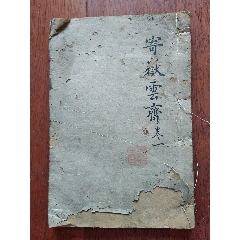 寄嶽雲齋卷一